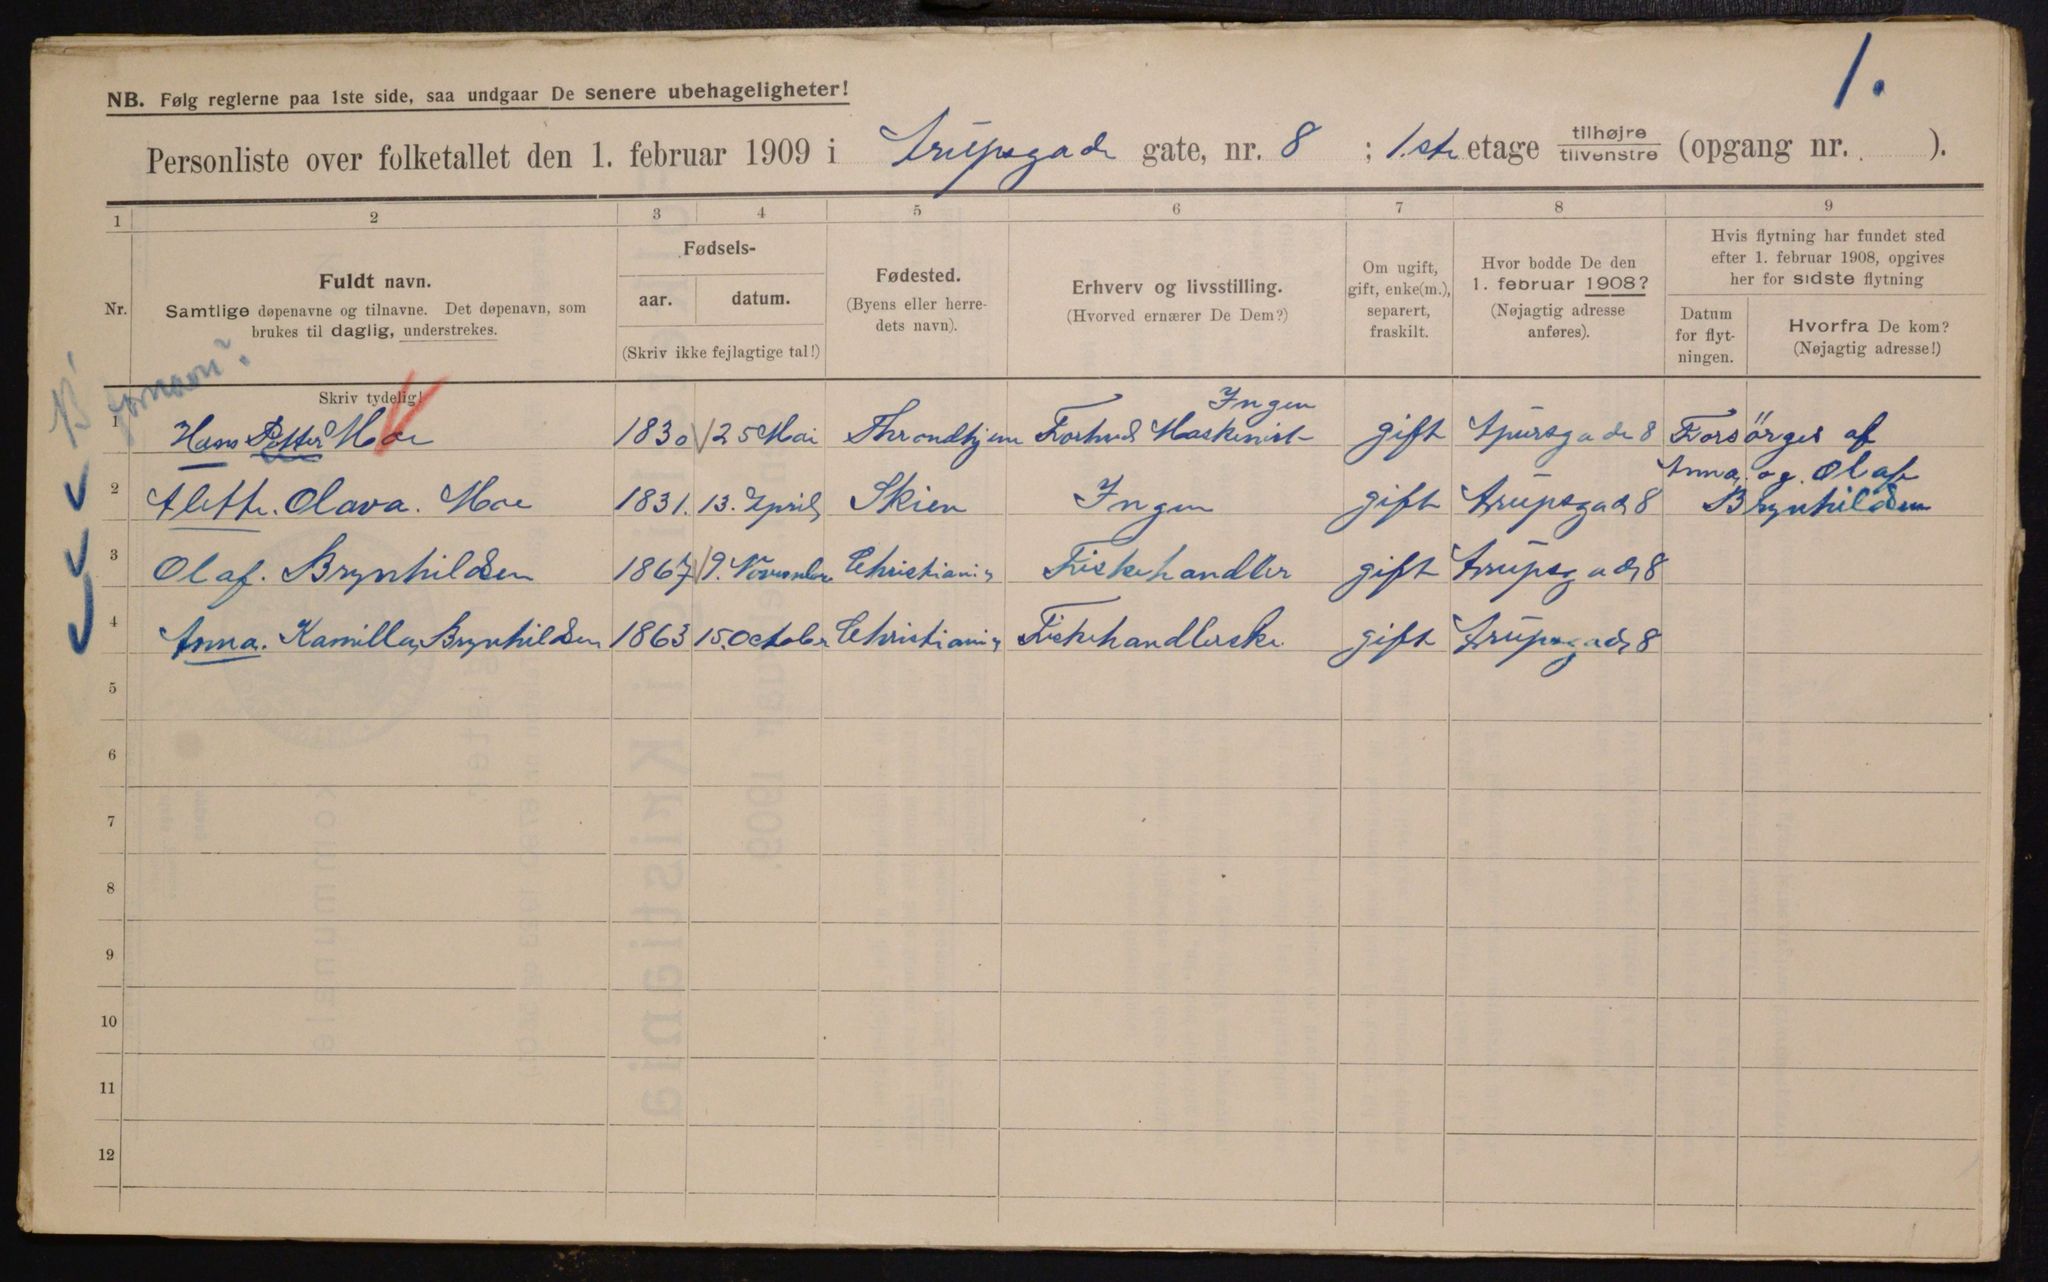 1.
NB. Følg reglerne paa 1ste side, saa undgaar De senere ubehageligheter!
Personliste over folketallet den 1. februar 1909 i Arupsgade gate, nr. 8 ; 1.ste etage tilhøjre/tilvenstre (opgang nr. ).
1 2 3 4 5 6 7 8 9
Nr.
Fuldt navn.
Samtlige døpenavne og tilnavne. Det døpenavn, som
brukes til daglig, understrekes.
Skriv tydelig!
Fødsels-
aar. datum.
(Skriv ikke fejlagtige tal!)
Fødested.
(Byens eller herre-
dets navn).
Erhverv og livsstilling.
(Hvorved ernærer De Dem?)
Om ugift,
gift, enke(m.),
separert,
fraskilt.
Hvor bodde De den
1. februar 1908?
(Nøjagtig adresse
anføres).
Hvis flytning har fundet sted
efter 1. februar 1908, opgives
her for sidste flytning
Datum
for flyt-
ningen.
Hvorfra De kom?
(Nøjagtig adresse!)
fornavn?
Ingen
1 Hans Petter Moe 1830 25 Mai Throndhjem Forhend Maskenist gift Apursgade 8 Forsörges af
Anna. og. Olaf
2 Alette. Olava. Moe 1831. 13. April Skien Ingen gift Arupsgade 8 Brynhildsen
3 Olaf. Brynhildsen 1867 9. November Christiania Fiskehandler gift Arupsgade 8
4 Anna. Kamilla Brynhildsen 1863 15. October Christiania Fiskehandlerske gift Arupsgade 8
5
6
7
8
9
10
11
12